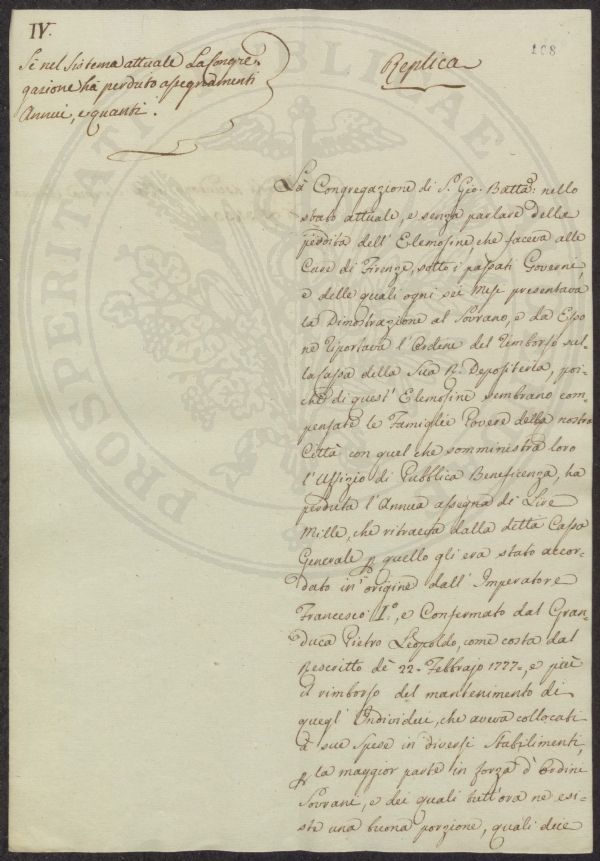 IV.
108
Se nel Sistema attuale La Congre-
gazione ha perduto assegnamenti
Annui, e quanti.
Replica
La Congregazione di S. Gio. Batta: nello
stato attuale, e senza parlare della
perdita dell'Elemosine, che faceva alle
Case di Firenze, sotto i passati Governi,
e delle quali ogni sei Mesi presentava
la Dimostrazione al Sovrano, e da Esso
ne riportava l'Ordine del rimborso sul-
la Cassa della Sua R. Depositeria, poi-
chè di quest'Elemosine sembrano com-
pensate le Famiglie Povere della nostra
Città con quel che somministra loro
l'Uffizio di Pubblica Beneficenza, ha
perduta l'Annua assegna di Lire
Mille, che ritraeva dalla detta Cassa
Generale p quello gli era stato accor-
dato in origine dall'Imperatore
Francesco I.º, e Confermato dal Gran-
Duca Pietro Leopoldo, come costa dal
Rescritto de 22. Febbrajo 1777., e più
il rimborso del mantenimento di
quegl'Individui, che aveva collocati
a sue Spese in diversi Stabilimenti,
p la maggior parte in forza d'Ordini
Sovrani, e dei quali tutt'ora ne esi-
ste una buona porzione, quali due
PROSPERITATI PUBLICAE